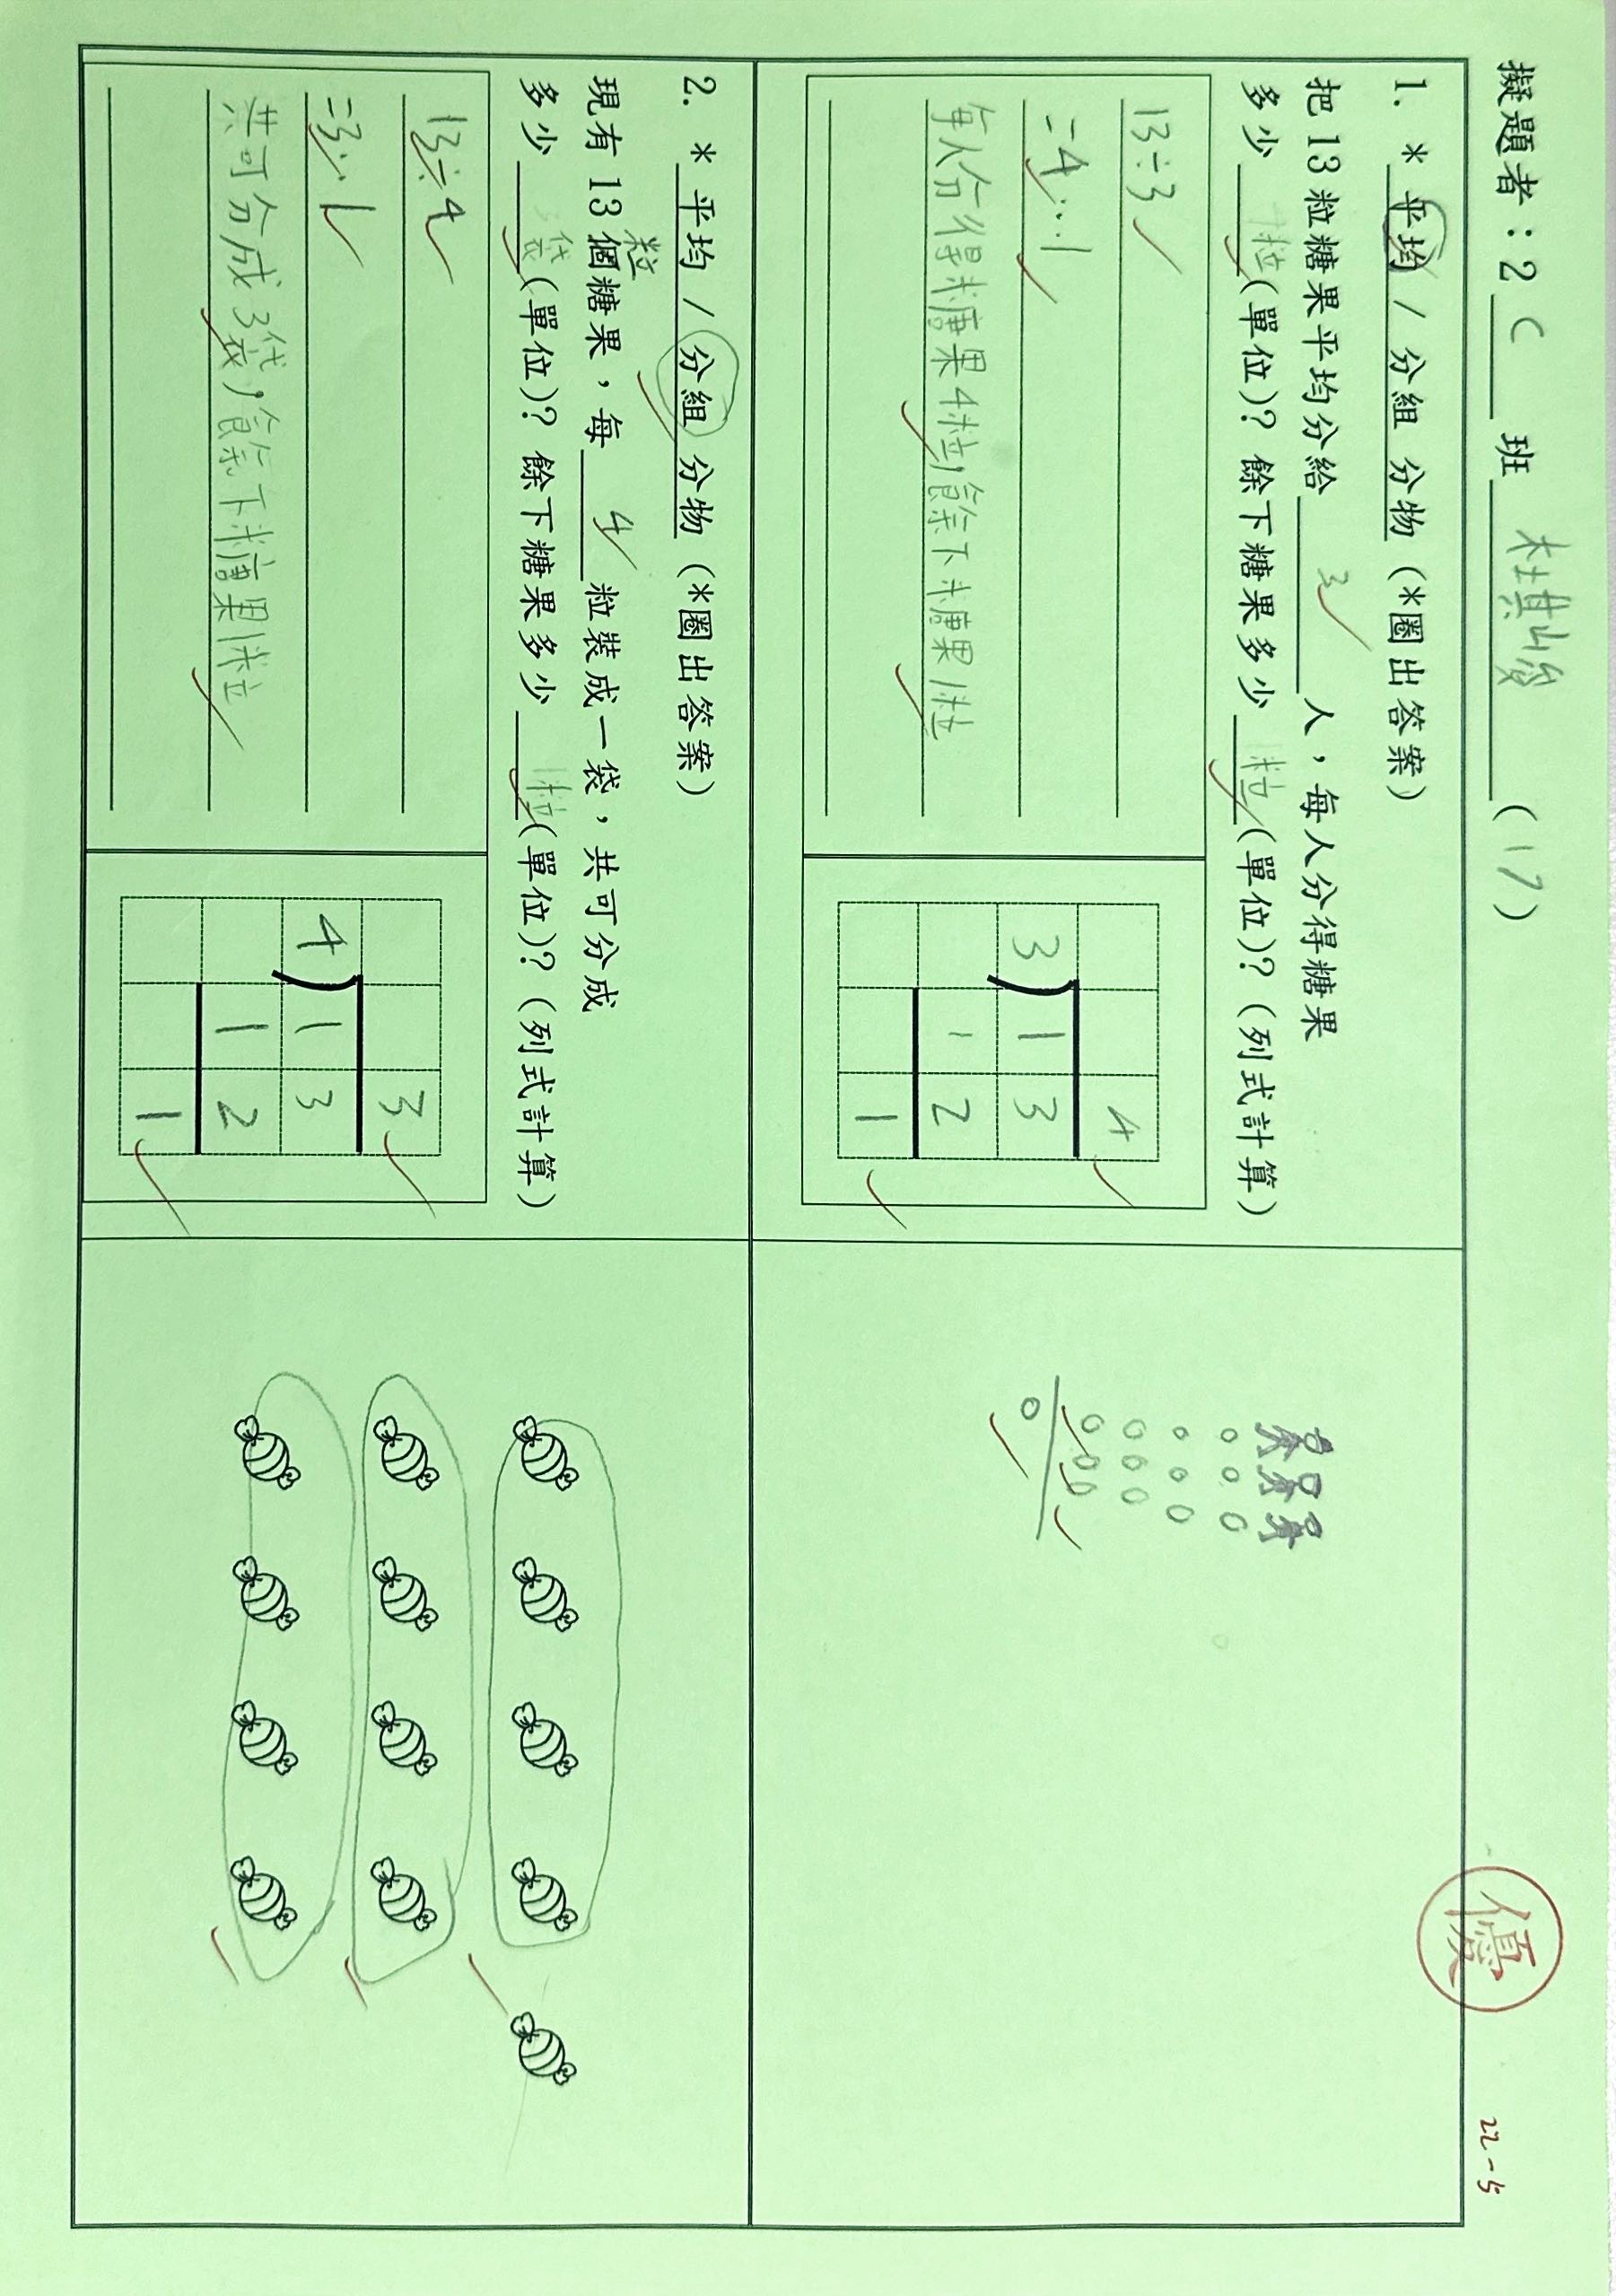 擬題者：2 C 班 杜其峻 (17)
優
22-5
1. * 平均 / 分組 分物 (*圈出答案)
把 13 粒糖果平均分給 3 人，每人分得糖果
多少 粒 (單位)？餘下糖果多少 粒 (單位)？(列式計算)
13÷3
=4…1
每人分得糖果4粒，餘下糖果1粒
4
3 1 3
1 2
1
2. * 平均 / 分組 分物 (*圈出答案)
粒
現有 13 個糖果，每 4 粒裝成一袋，共可分成
多少 袋 (單位)？餘下糖果多少 粒 (單位)？(列式計算)
13÷4
=3…1
共可分成3袋，餘下糖果1粒
3
4 1 3
1 2
1